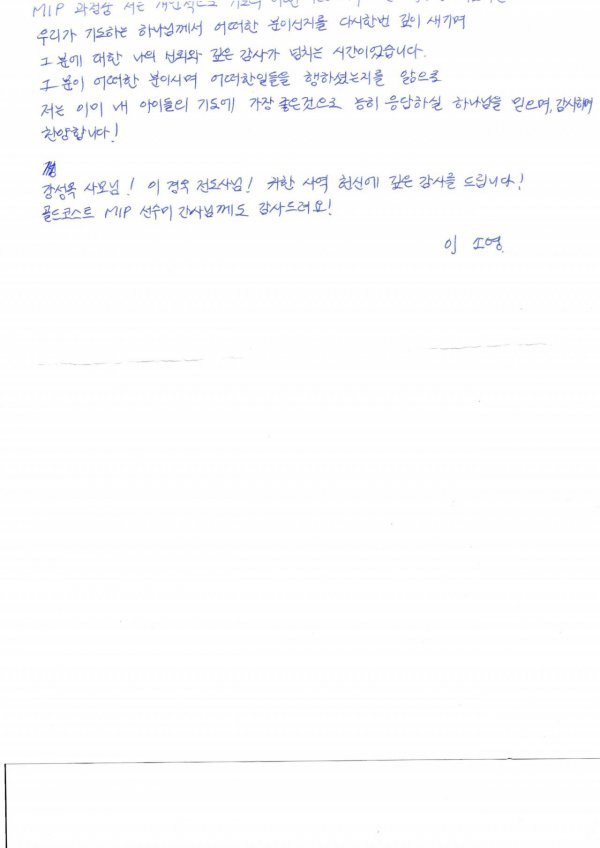 MIP 과정중 저는 개인적으로 기도의
우리가 기도하는 하나님께서 어떠한 분이신지를 다시한번 깊이 새기며
그 분에 대한 나의 신뢰와 깊은 감사가 넘치는 시간이었습니다.
그 분이 어떠한 분이시며 어떠한일들을 행하셨는지를 앎으로
저는 이미 내 아이들의 기도에 가장 좋은것으로 능히 응답하실 하나님을 믿으며, 감사하며
찬양합니다!
장성옥 사모님! 이 경욱 전도사님! 귀한 사역 헌신에 깊은 감사를 드립니다!
골드코스트 MIP 선수미 간사님께도 감사드려요!
이 소영.